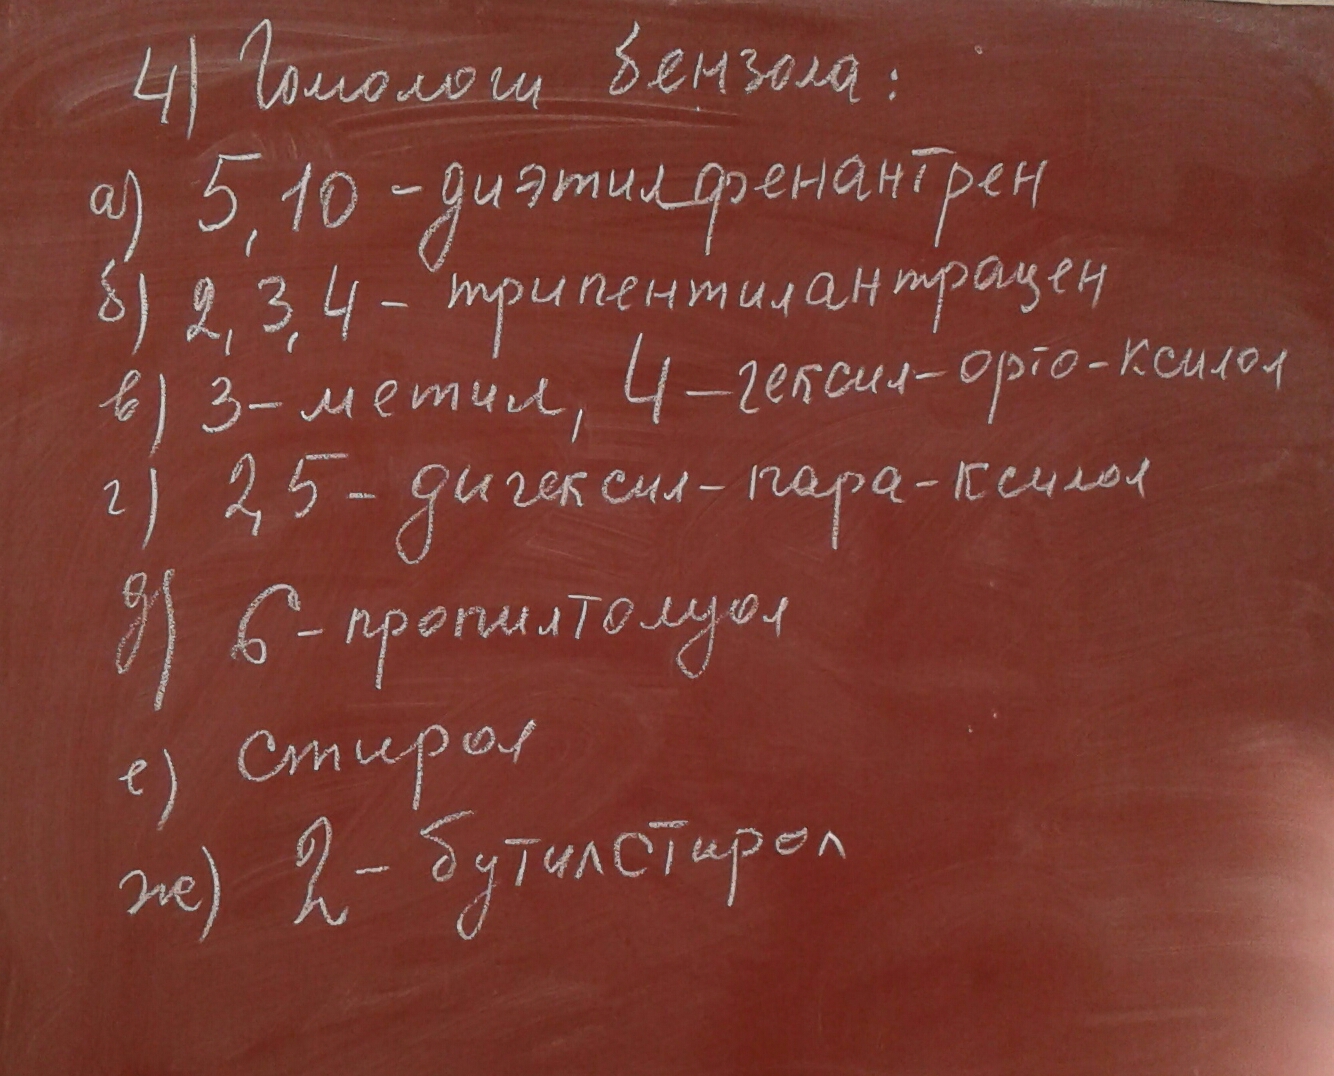 4) Гомологи бензола:
а) 5,10-диэтилфенантрен
б) 2,3,4-трипентилантрацен
в) 3-метил, 4-гексил-орто-ксилол
г) 2,5-дигексил-пара-ксилол
д) 6-пропилтолуол
е) стирол
ж) 2-бутилстирол